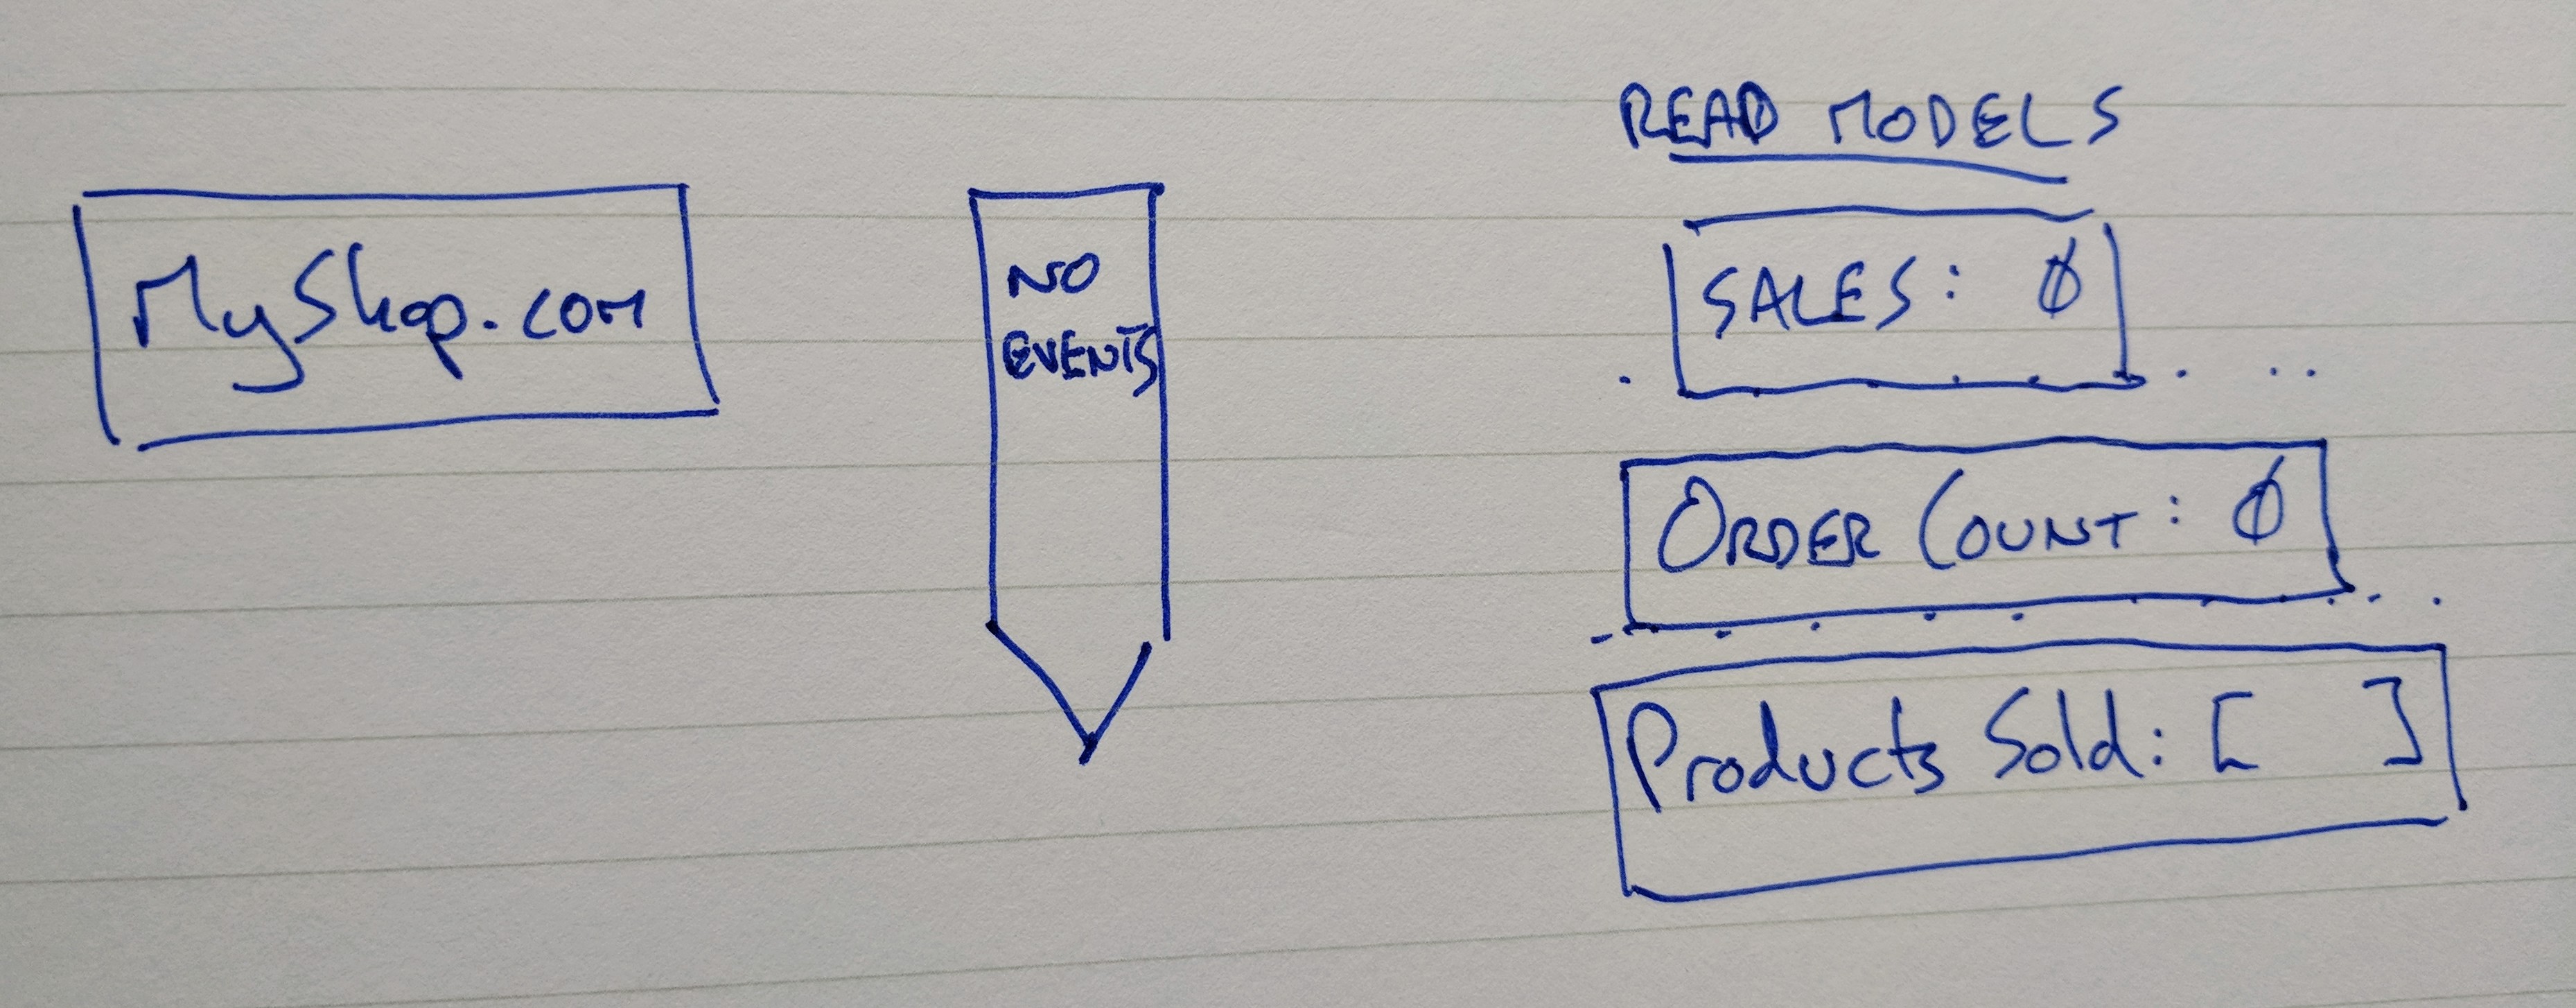 MyShop.com
NO
EVENTS
READ MODELS
SALES: Ø
ORDER COUNT: Ø
Products Sold: [ ]